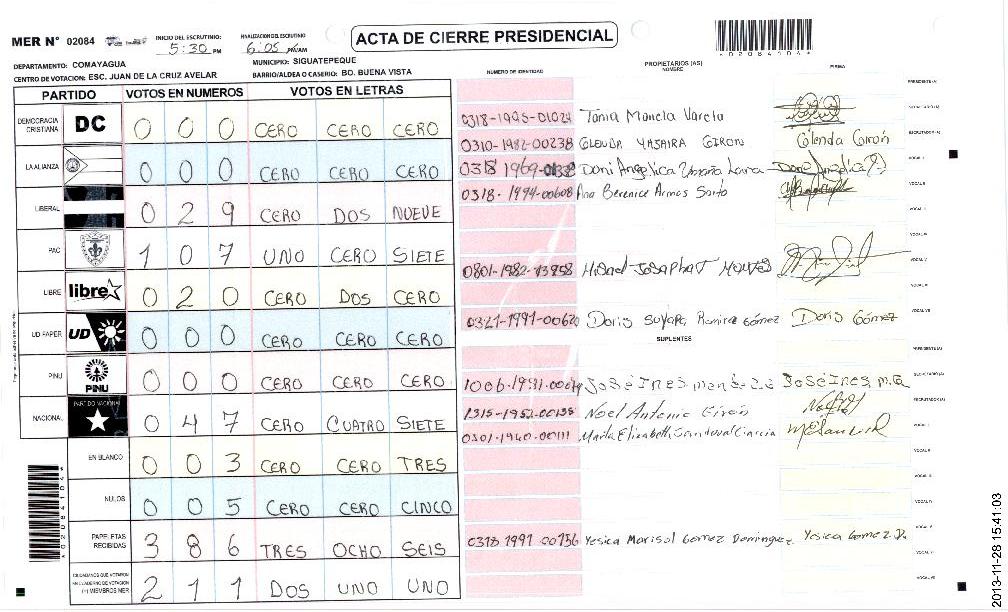 MER N° 02084 INICIO DEL ESCRUTINIO: 5:30 PM FINALIZACION DEL ESCRUTINIO 6:05 PM/AM ACTA DE CIERRE PRESIDENCIAL
DEPARTAMENTO: COMAYAGUA MUNICIPIO: SIGUATEPEQUE
CENTRO DE VOTACION: ESC. JUAN DE LA CRUZ AVELAR BARRIO/ALDEA O CASERIO: BO. BUENA VISTA
*02084104*
PARTIDO VOTOS EN NUMEROS VOTOS EN LETRAS
DEMOCRACIA CRISTIANA DC 0 0 0 CERO CERO CERO
LA ALIANZA 0 0 0 CERO CERO CERO
LIBERAL 0 2 9 CERO DOS NUEVE
PAC 1 0 7 UNO CERO SIETE
LIBRE libre 0 2 0 CERO DOS CERO
UD FAPER UD 0 0 0 CERO CERO CERO
PINU PINU 0 0 0 CERO CERO CERO
NACIONAL PARTIDO NACIONAL 0 4 7 CERO CUATRO SIETE
EN BLANCO 0 0 3 CERO CERO TRES
NULOS 0 0 5 CERO CERO CINCO
PAPELETAS RECIBIDAS 3 8 6 TRES OCHO SEIS
CIUDADANOS QUE VOTARON EN CUADERNO DE VOTACION (+) MIEMBROS MER 2 1 1 DOS UNO UNO
*02084104*
NUMERO DE IDENTIDAD PROPIETARIOS (AS) NOMBRE FIRMA
PRESIDENTE(A)
0318-1995-01024 Tania Mariela Varela SECRETARIO(A)
0310-1982-00238 GLENDA YASAIRA GIRON Glenda Girón ESCRUTADOR(A)
0318 1969 Angelica VOCAL I
0318-1994-00608 Ana Berenice Armas VOCAL II
VOCAL III
VOCAL IV
0801-1982-13958 Misael Josaphat VOCAL V
VOCAL VI
0321-1991-00620 Doris Suyapa Ramirez Gómez Doris Gómez VOCAL VII
SUPLENTES
PRESIDENTE(A)
1006-1991 José Ines José Ines M.G. SECRETARIO(A)
1315-1952-00135 Noel Antonio Girón ESCRUTADOR(A)
0301-1940-00111 Marta Elizabeth Sandoval Garcia VOCAL I
VOCAL II
VOCAL III
VOCAL IV
0318 1991 00756 Yesica Marisol Gomez Dominguez Yesica Gomez D. VOCAL V
VOCAL VI
VOCAL VII
2013-11-28 15:41:03